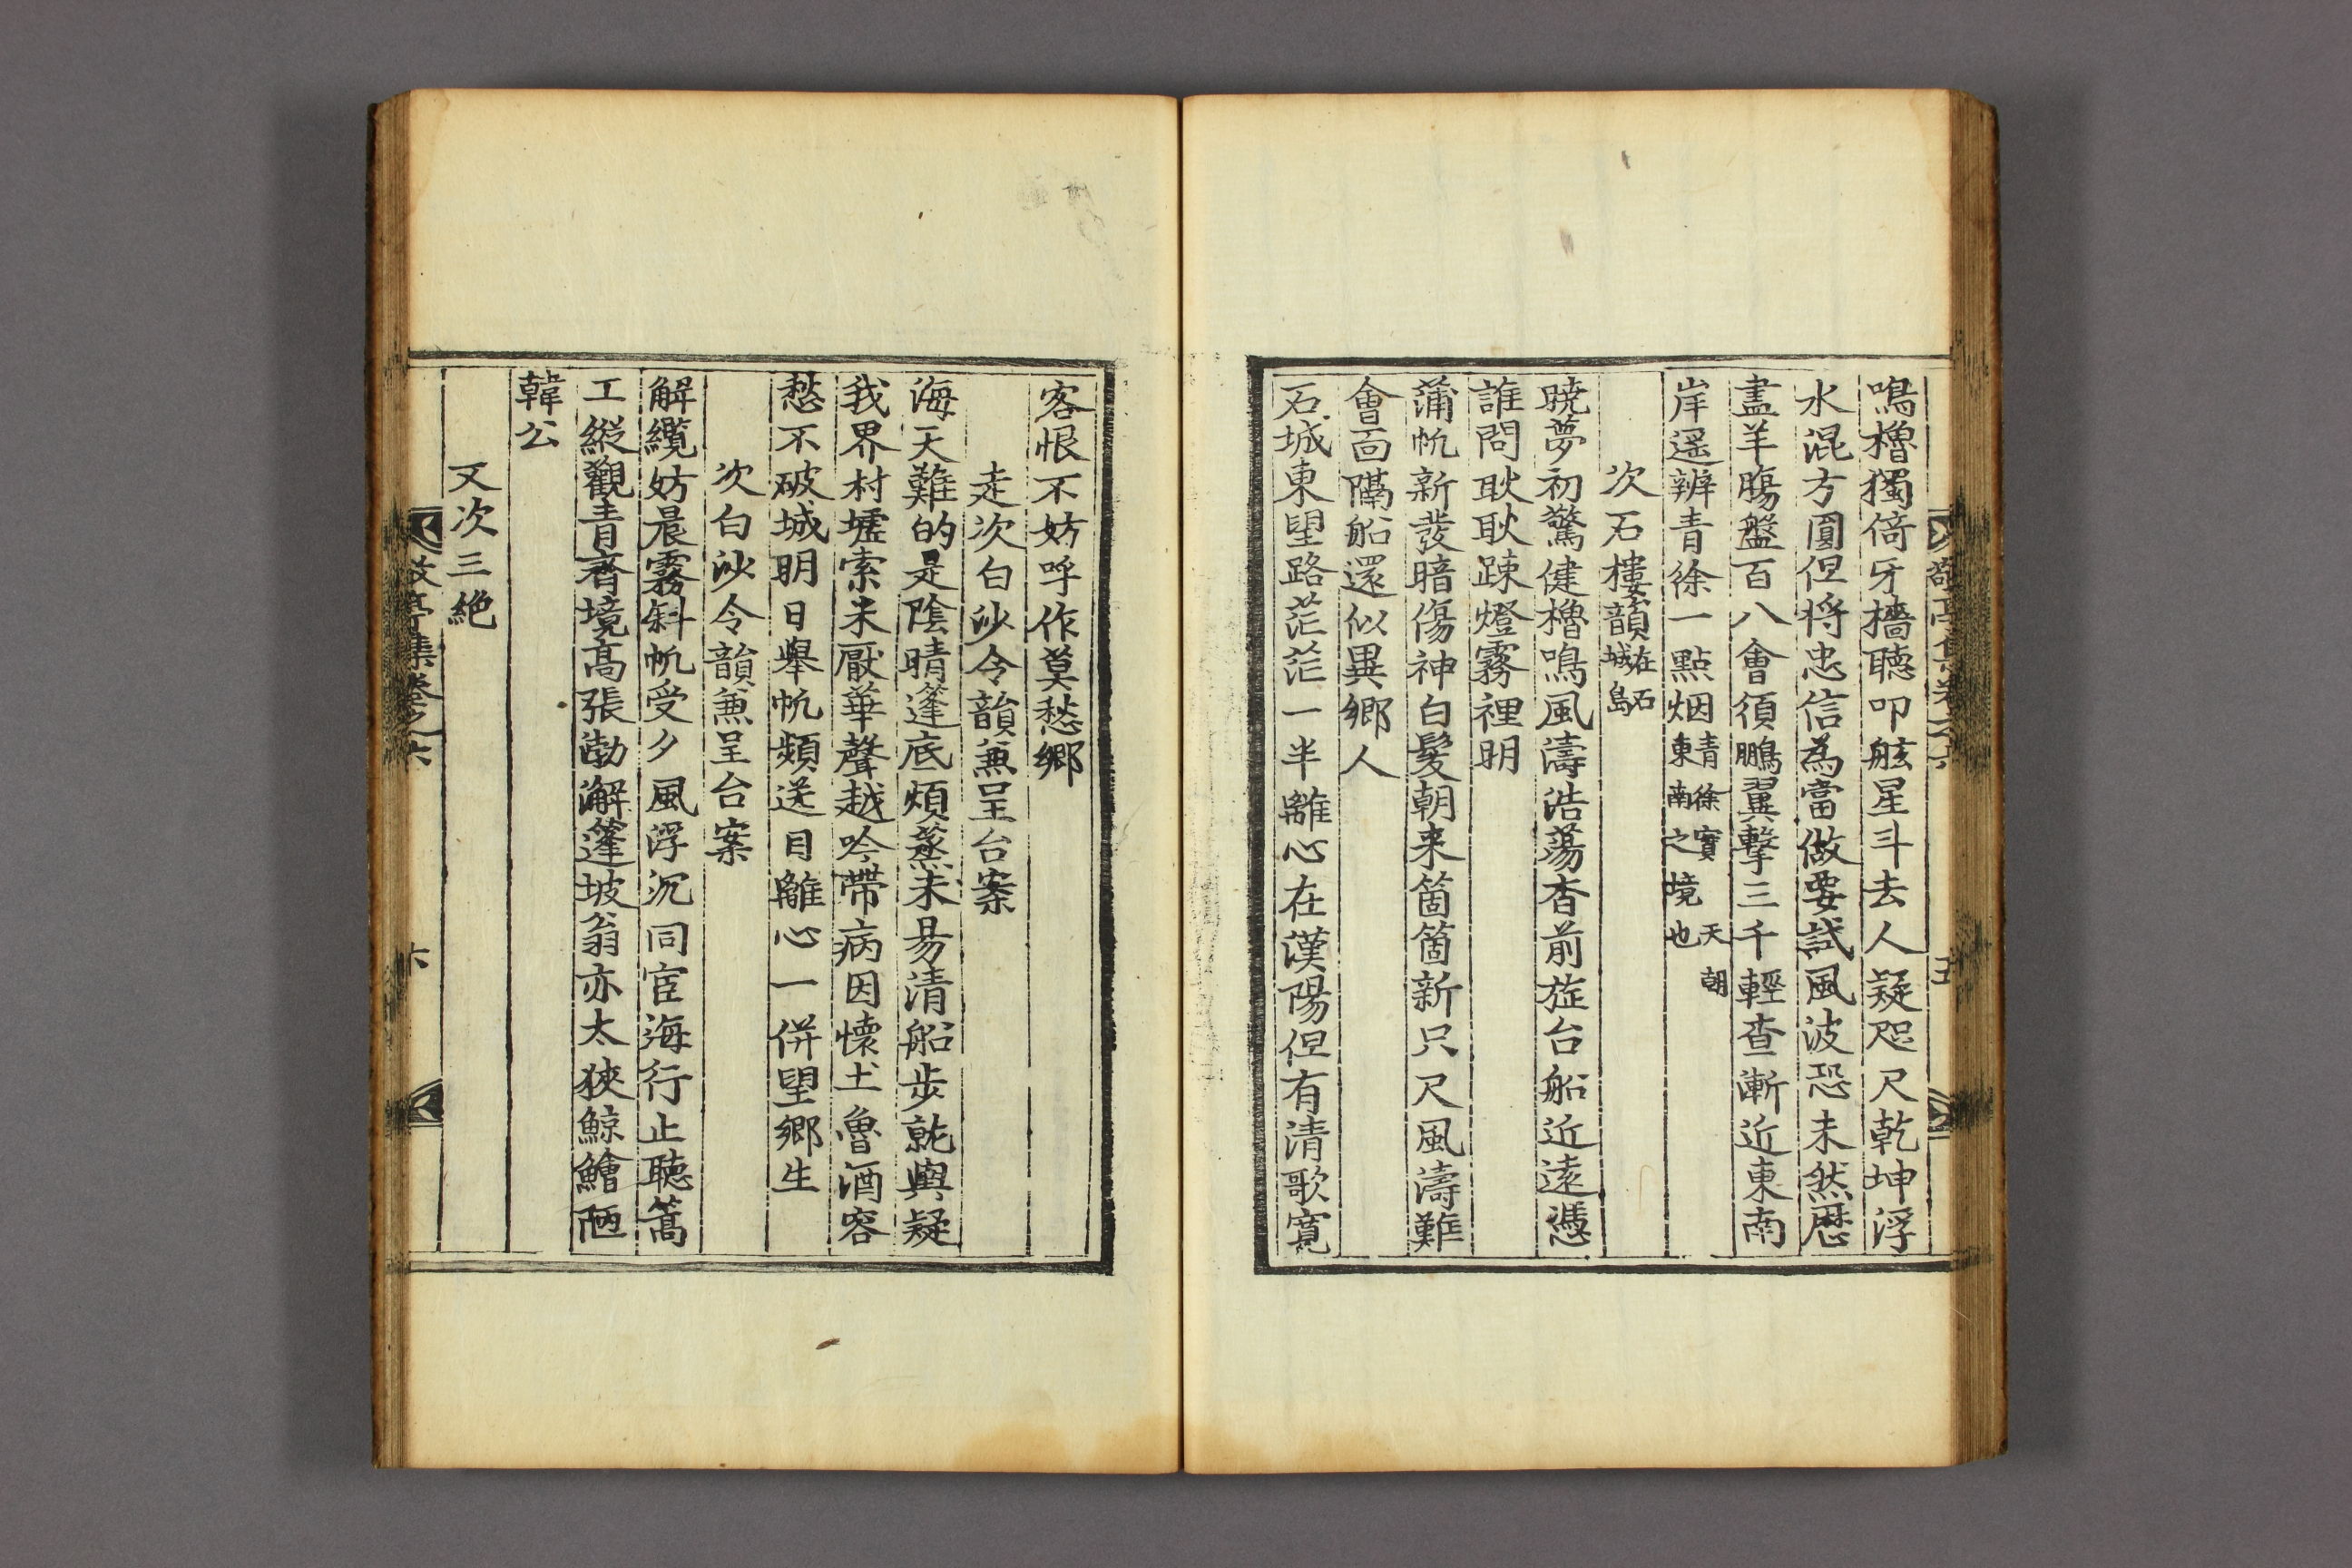 鳴櫓獨倚牙檣聽叩舷星斗去人疑咫尺乾坤浮
水混方圓但將忠信為當做要試風波恐未然歷
盡羊膓盤百八會須鵬翼擊三千輕查漸近東南
岸遥辨青徐一點烟青徐實天朝東南之境也
次石樓韻在石城島
曉夢初驚健櫓鳴風濤浩蕩杳前旌台船近遠憑
誰問耿耿踈燈霧裡明
蒲帆新發暗傷神白髮朝来箇箇新只尺風濤難
會面隔船還似異鄉人
石城東望路茫茫一半離心在漢陽但有清歌寬
敬亭集卷之六 五
客恨不妨呼作莫愁鄉
走次白沙令韻兼呈台案
海天難的是陰晴篷底煩蒸未易清船步就與疑
我界村墟索未厭華聲越吟帶病因懷土魯酒容
愁不破城明日舉帆頻送目離心一併望鄉生
次白沙令韻兼呈台案
解纜妨晨霧斜帆受夕風浮沉同宦海行止聽篙
工縱觀青齊境高張渤澥篷坡翁亦太狹鯨鱠陋
韓公
又次三絶
敬亭集卷之六 六